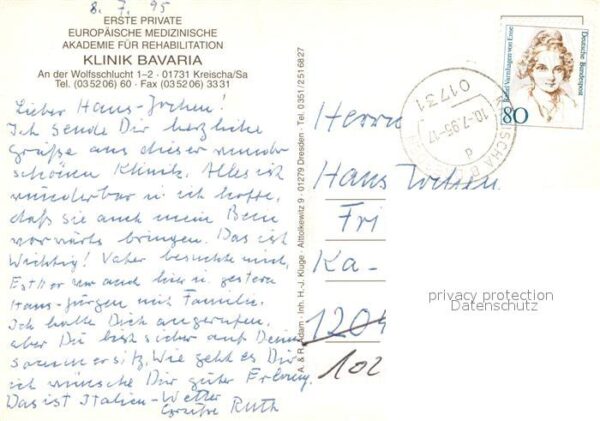 8. 7. 95
ERSTE PRIVATE
EUROPÄISCHE MEDIZINISCHE
AKADEMIE FÜR REHABILITATION
KLINIK BAVARIA
An der Wolfsschlucht 1–2 · 01731 Kreischa/Sa
Tel. (03 52 06) 60 · Fax (03 52 06) 3331
Lieber Hans-Jochen!
Ich sende Dir herzliche
Grüße aus dieser wunder
schönen Klinik. Alles ist
wunderbar u. ich hoffe,
daß sie auch mein Bein
vorwärts bringen. Das ist
Wichtig! Vater besuchte mich,
Esther war auch hier u. gestern
Hans-Jürgen mit Familie.
Ich hatte Dich angerufen,
aber Du bist sicher auf Deinem
sommersitz. Wie geht es Dir
ich wünsche Dir guter
Das ist Italien-Wetter
Grüße Ruth
A. & R. Adam · Inh. H.-J. Kluge · Alttolkewitz 9 · 01279 Dresden · Tel. 0351/2516827
Herrn
Hans Jochen
Fri
Ka-
1204
102
01731
10.-7.95-17
KREISCHA
d
Rahel Varnhagen von Ense
Deutsche Bundespost
80
privacy protection
Datenschutz